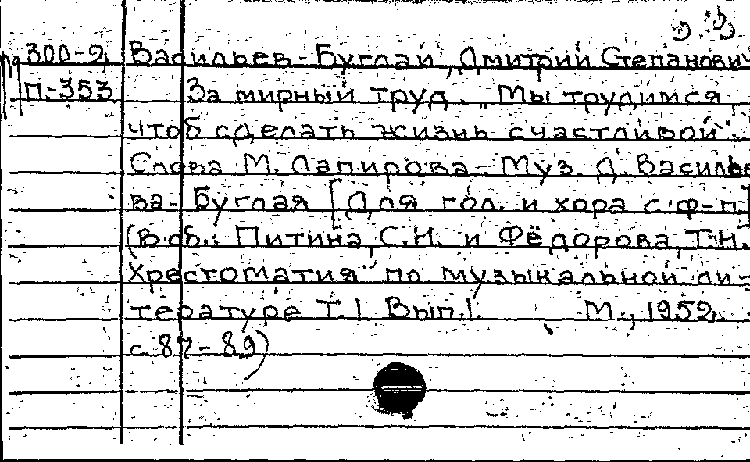 300-2 Васильев-Буглай, Дмитрий Степанович
П-353 За мирный труд. "Мы трудимся,
чтоб сделать жизнь счастливой".
Слова М. Лапирова - Муз. Д. Василье
ва-Буглая [Для гол. и хора с ф-п.]
(В сб.: Питина, С.Н. и Фёдорова, Т.Н.
Хрестоматия по музыкальной ли-
тературе Т.I Вып.I. М., 1952,
с. 87-89)